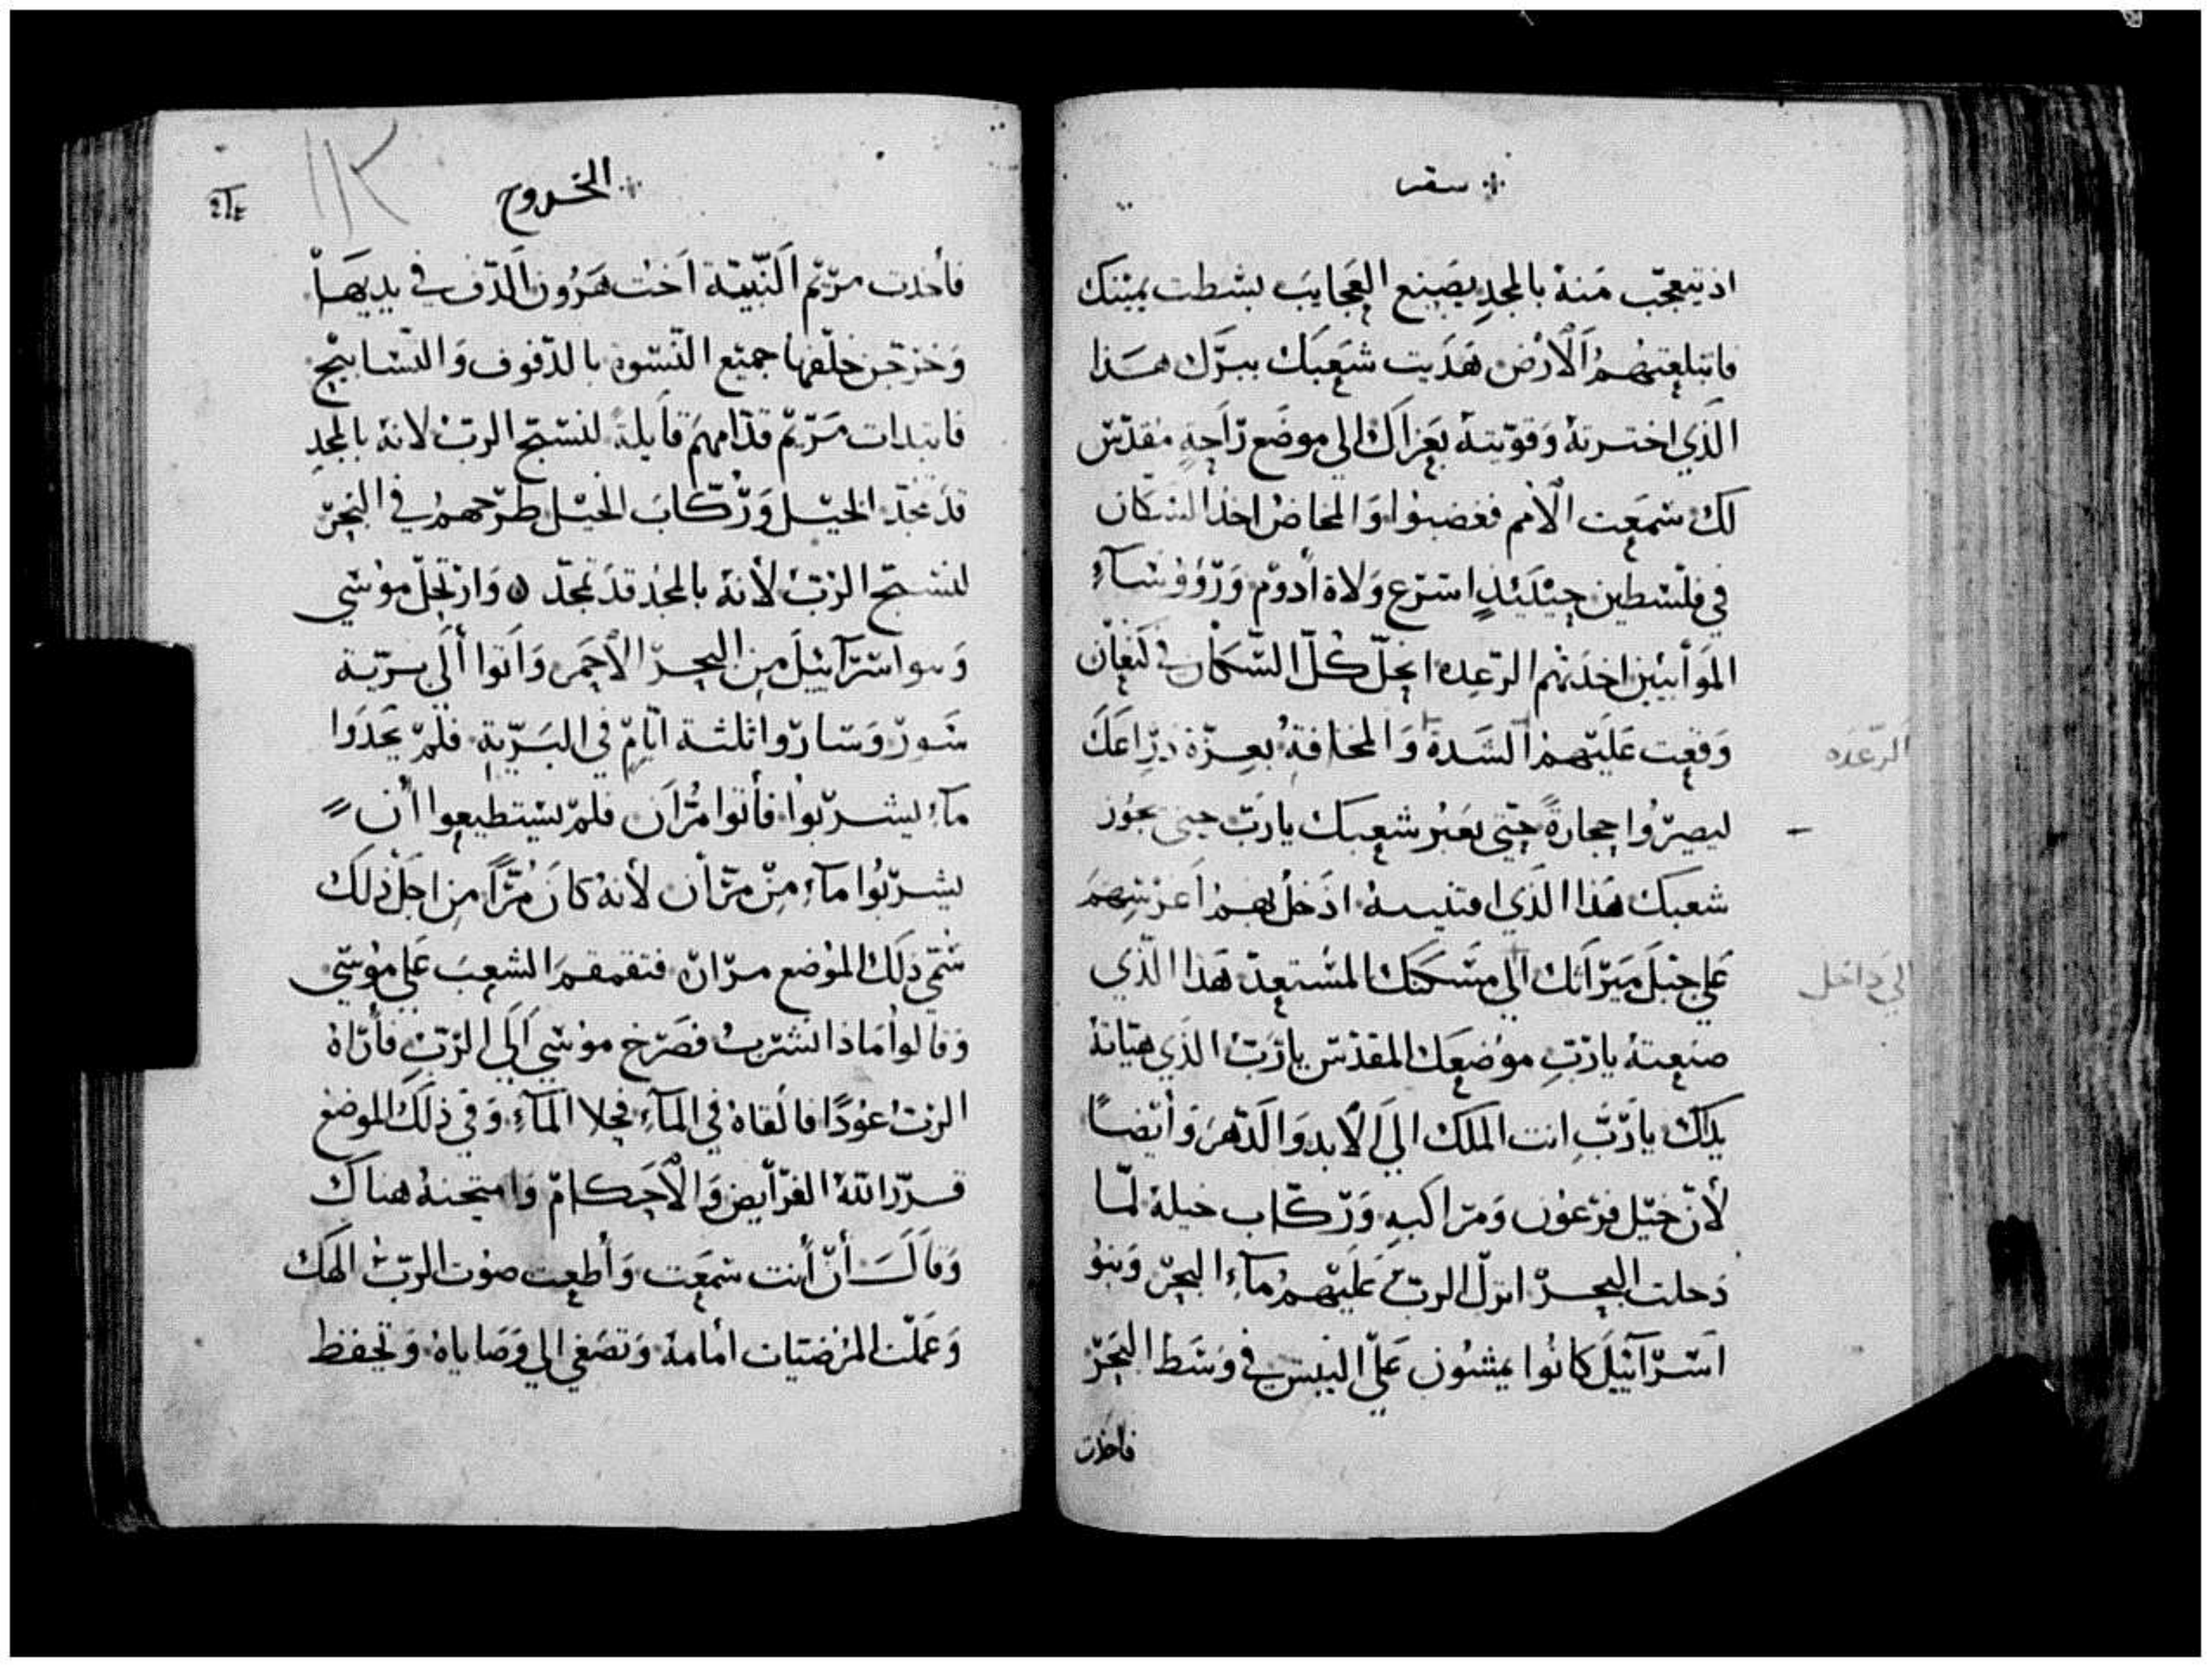 سفر
اذ يتعجب منه بالمجد يصنع العجايب بسطت يمينك
فابتلعتهم الارض هديت شعبك ببرك هذا
الذي اخترته وقويته بعزاك الي موضع راحة مقدس
لك سمعت الامم فغضبوا والمخاض اخذ السكان
في فلسطين حينيذ اسرع ولاة ادوم ورؤوساء
الموأبيين اخذتهم الرعده انحل كل السكان في كنعان
وقعت عليهم الشدة والمخافة بعزة ذراعك
ليصيروا حجارة حتي يعبر شعبك يارب حتى يجوز
شعبك هذا الذي اقتنيته ادخل بهم اغرسهم
علي جبل ميراثك الي مسكنك المستعد هذا الذي
صنعته يارب موضعك المقدس يارب الذي هياته
يدك يارب انت الملك الي الابد والدهر وأيضاً
لأن خيل فرعون ومراكبه وركاب خيله لما
دخلت البحر انزل الرب عليهم ماء البحر وبنو
اسرآئيل كانوا يمشون علي اليبس في وسط البحر
فاخذت
الرعده
الي داخل
الخروج
فأخذت مريم النبية اخت هرون الدف في يديها
وخرجن خلفها جميع النسوة بالدفوف والتسابيح
فابتدات مريم قدامهم قايلة لنسبح الرب لانه بالمجد
قد تمجد الخيل وركاب الخيل طرحهم في البحر
لنسبح الرب لأنه بالمجد قد تمجد ۞ وارتحل موسي
وبنو اسرآئيل من البحر الاحمر واتوا ألي برية
شور وساروا ثلثة ايام في البرية فلم يجدوا
مآء ليشربوا فأتوا مران فلم يستطيعوا أن
يشربوا مآء من مرأن لأنه كان مراً من اجل ذلك
سمي ذلك الموضع مران فتقمقم الشعب علي موسي
وقالوا ماذا نشرب فصرخ موسي الي الرب فأراه
الرب عوداً فالقاه في المآء فحلا المآء وفي ذلك الموضع
قرر الله الفرأيض والاحكام وامتحنه هناك
وقال أن أنت سمعت وأطعت صوت الرب الهك
وعملت المرضيات امامه وتصغي الي وصاياه وتحفظ